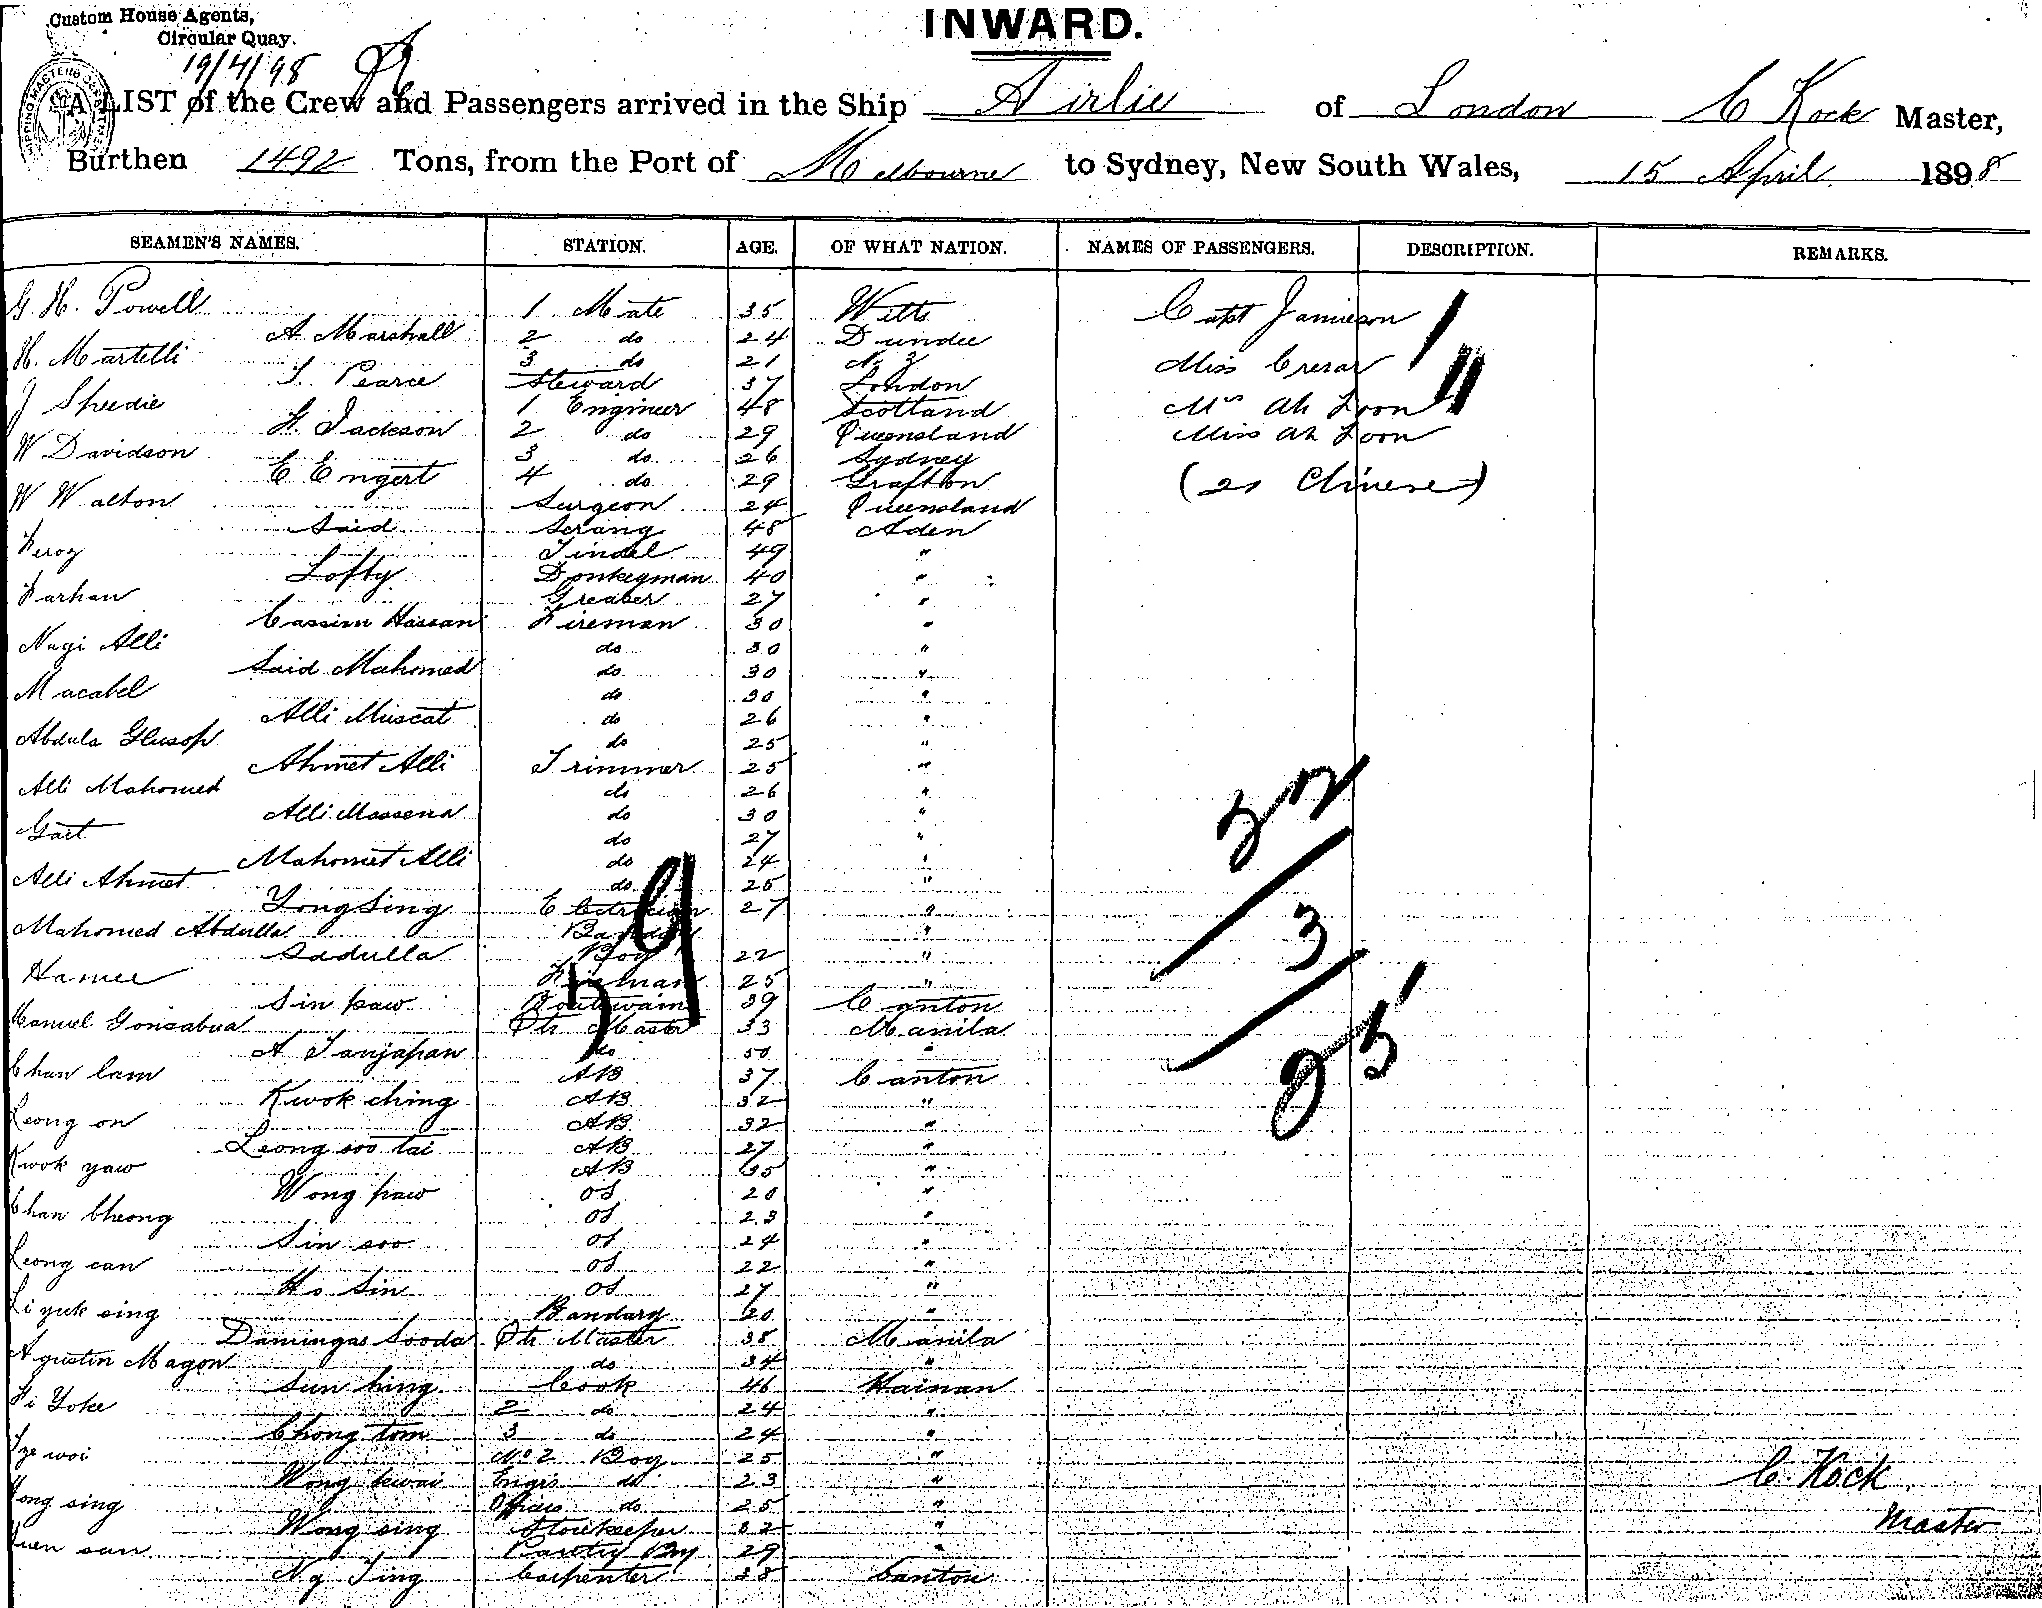 Custom House Agents,
Circular Quay.
19/4/98
INWARD.
A LIST of the Crew and Passengers arrived in the Ship Airlie of London C Kock Master,
Burthen 1492 Tons, from the Port of Melbourne to Sydney, New South Wales, 15 April 1898
SEAMEN'S NAMES. STATION. AGE. OF WHAT NATION. NAMES OF PASSENGERS. DESCRIPTION. REMARKS.
G. H. Powell 1 Mate 35 Wilts Capt Jamieson
A Marshall 2 do 24 Dundee
H. Martelli 3 do 21 N. Z Miss Crerar
T. Pearce Steward 37 London
J Speedie 1 Engineer 48 Scotland Mrs Ah Loon
H. Jackson 2 do 29 Queensland Miss Ah Loon
W Davidson 3 do 26 Sydney
C Engert 4 do 29 Grafton (21 Chinese)
W Walton Surgeon 24 Queensland
Said Serang 48 Aden
Feroy Tindel 49 "
Lofty Donkeyman 40 "
Farhan Greaser 27 "
Cassim Hassan Fireman 30 "
Nagi Alli do 30 "
Said Mahomed do 30 "
Macabel do 30 "
Alli Muscat do 26 "
Abdula Glusop do 25 "
Ahmet Alli Trimmer 25 "
Alli Mahomed do 26 "
Alli Massena do 30 "
Gait do 27 "
Mahomet Alli do 24 "
Alli Ahmet do 25 "
Yong Sing 27 "
Mahomed Abdulla "
Sadulla Boy 22 "
Hamee Fireman 25 "
Sin paw Boatswain 39 Canton
Manuel Gonsabua Qtr Master 33 Manila
A Tanjapan do 50 "
Chan lam AB 37 Canton
Kwok ching AB 32 "
Leong on AB 32 "
Leong soo tai AB 27 "
Kwok yaw AB 35 "
Wong paw OS 20 "
Chan Cheong OS 23 "
Sin soo OS 24 "
Leong can OS 22 "
Ho Sin OS 27 "
Li yuk sing Bandary 20 "
Damingas Sooda Qtr Master 38 Manila
Agustin Magon do 34 "
Sun hing Cook 46 Hainan
Fi Yoke 2 do 24 "
Chong tom 3 do 24 "
Tze woi No 2 Boy 25 "
Wong kwai Engrs do 23 "
Yong sing do 25 "
Wong sing Storekeeper 32 "
Yuen sun Pantry Boy 29 "
Ng Ting Carpenter 38 Canton
59
32
3
25
C. Kock
Master